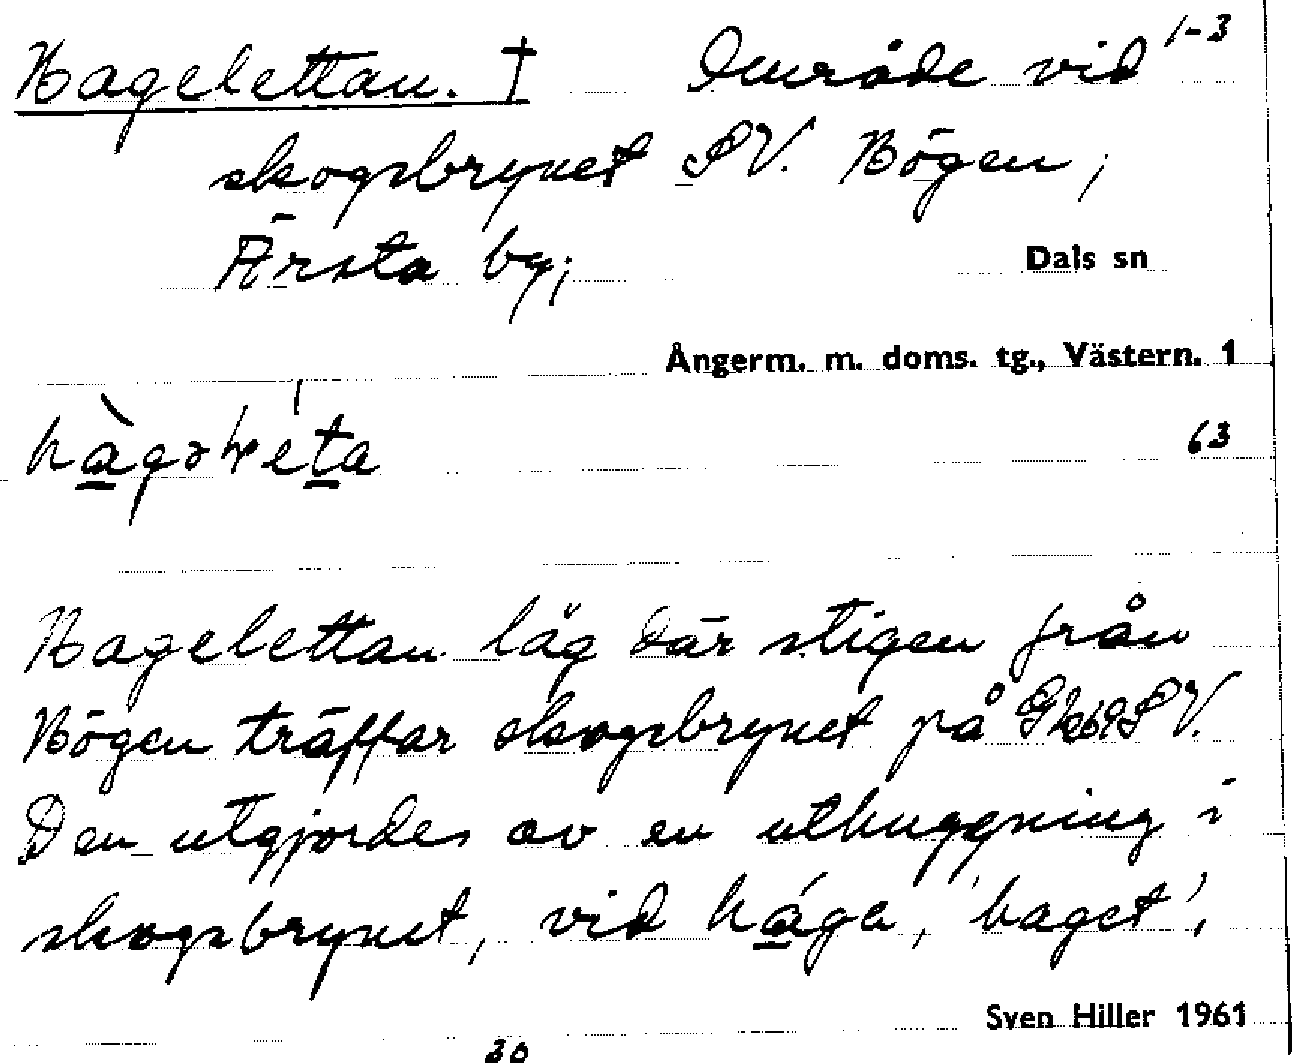 Hagelettan. † Område vid 1-3
skogsbrynet SV. Högen;
Ärsta by; Dals sn
Ångerm. m. doms. tg., Västern. 1
63
Hagelettan låg där stigen från
Högen träffar skogsbrynet på SV.
Den utgjordes av en uthuggning i
skogsbrynet, vid hága, 'haget'.
Sven Hiller 1961
30